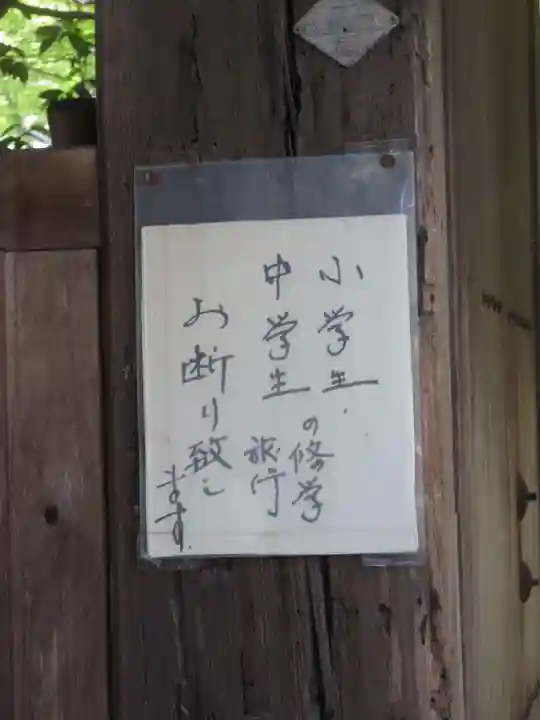 小学生
中学生
の修学
旅行
お断り致し
ます。